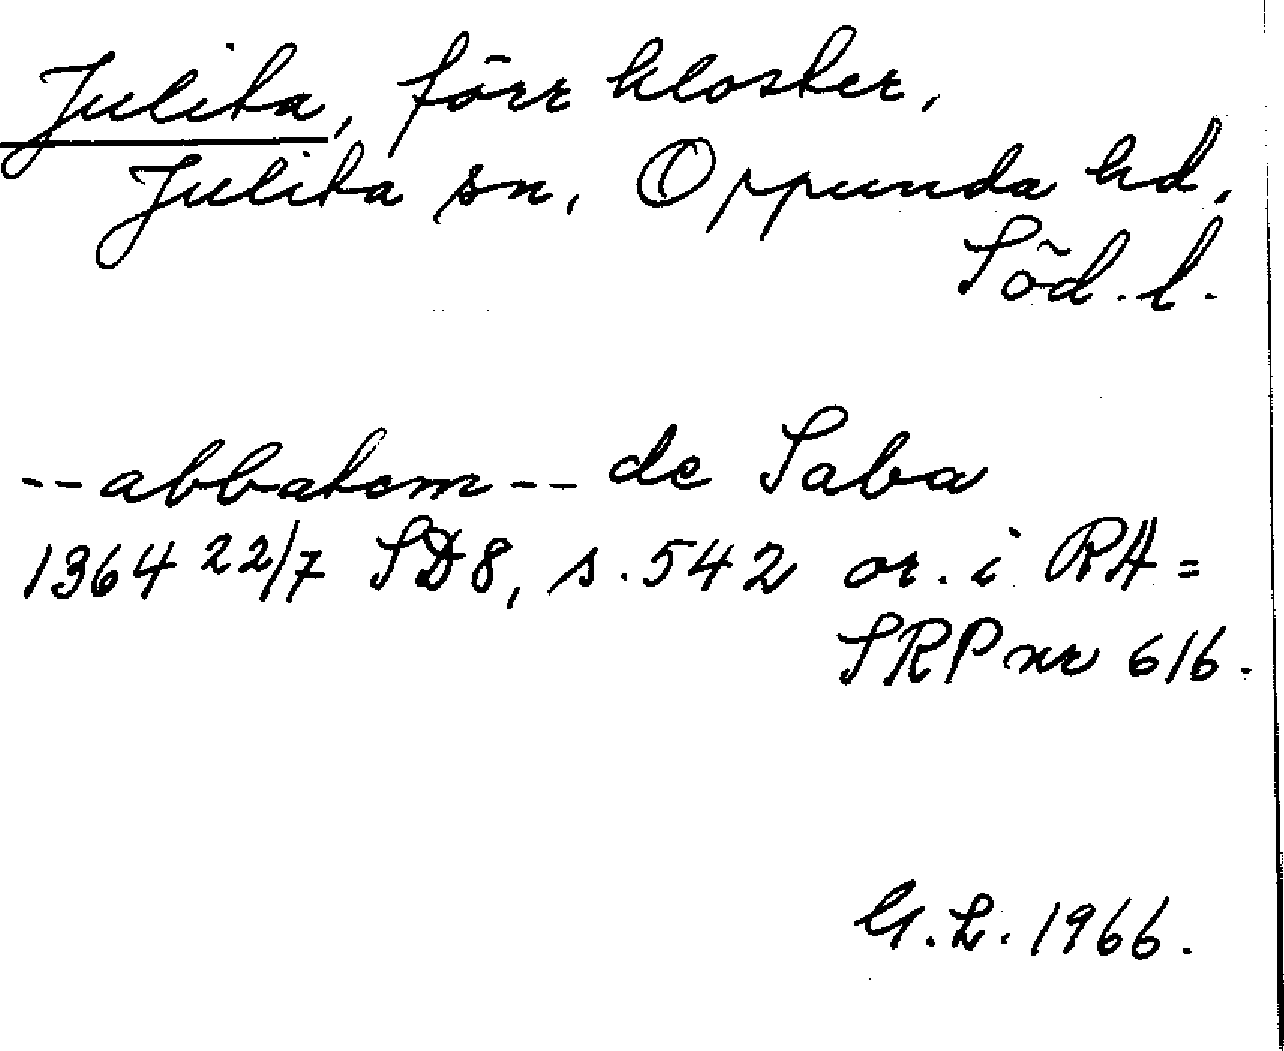 Julita, förr kloster,
Julita sn, Oppunda hd,
Söd. l.
-- abbatem -- de Saba
1364 22/7 SD8, s. 542 or. i RA =
SRP nr 616.
G. L. 1966.